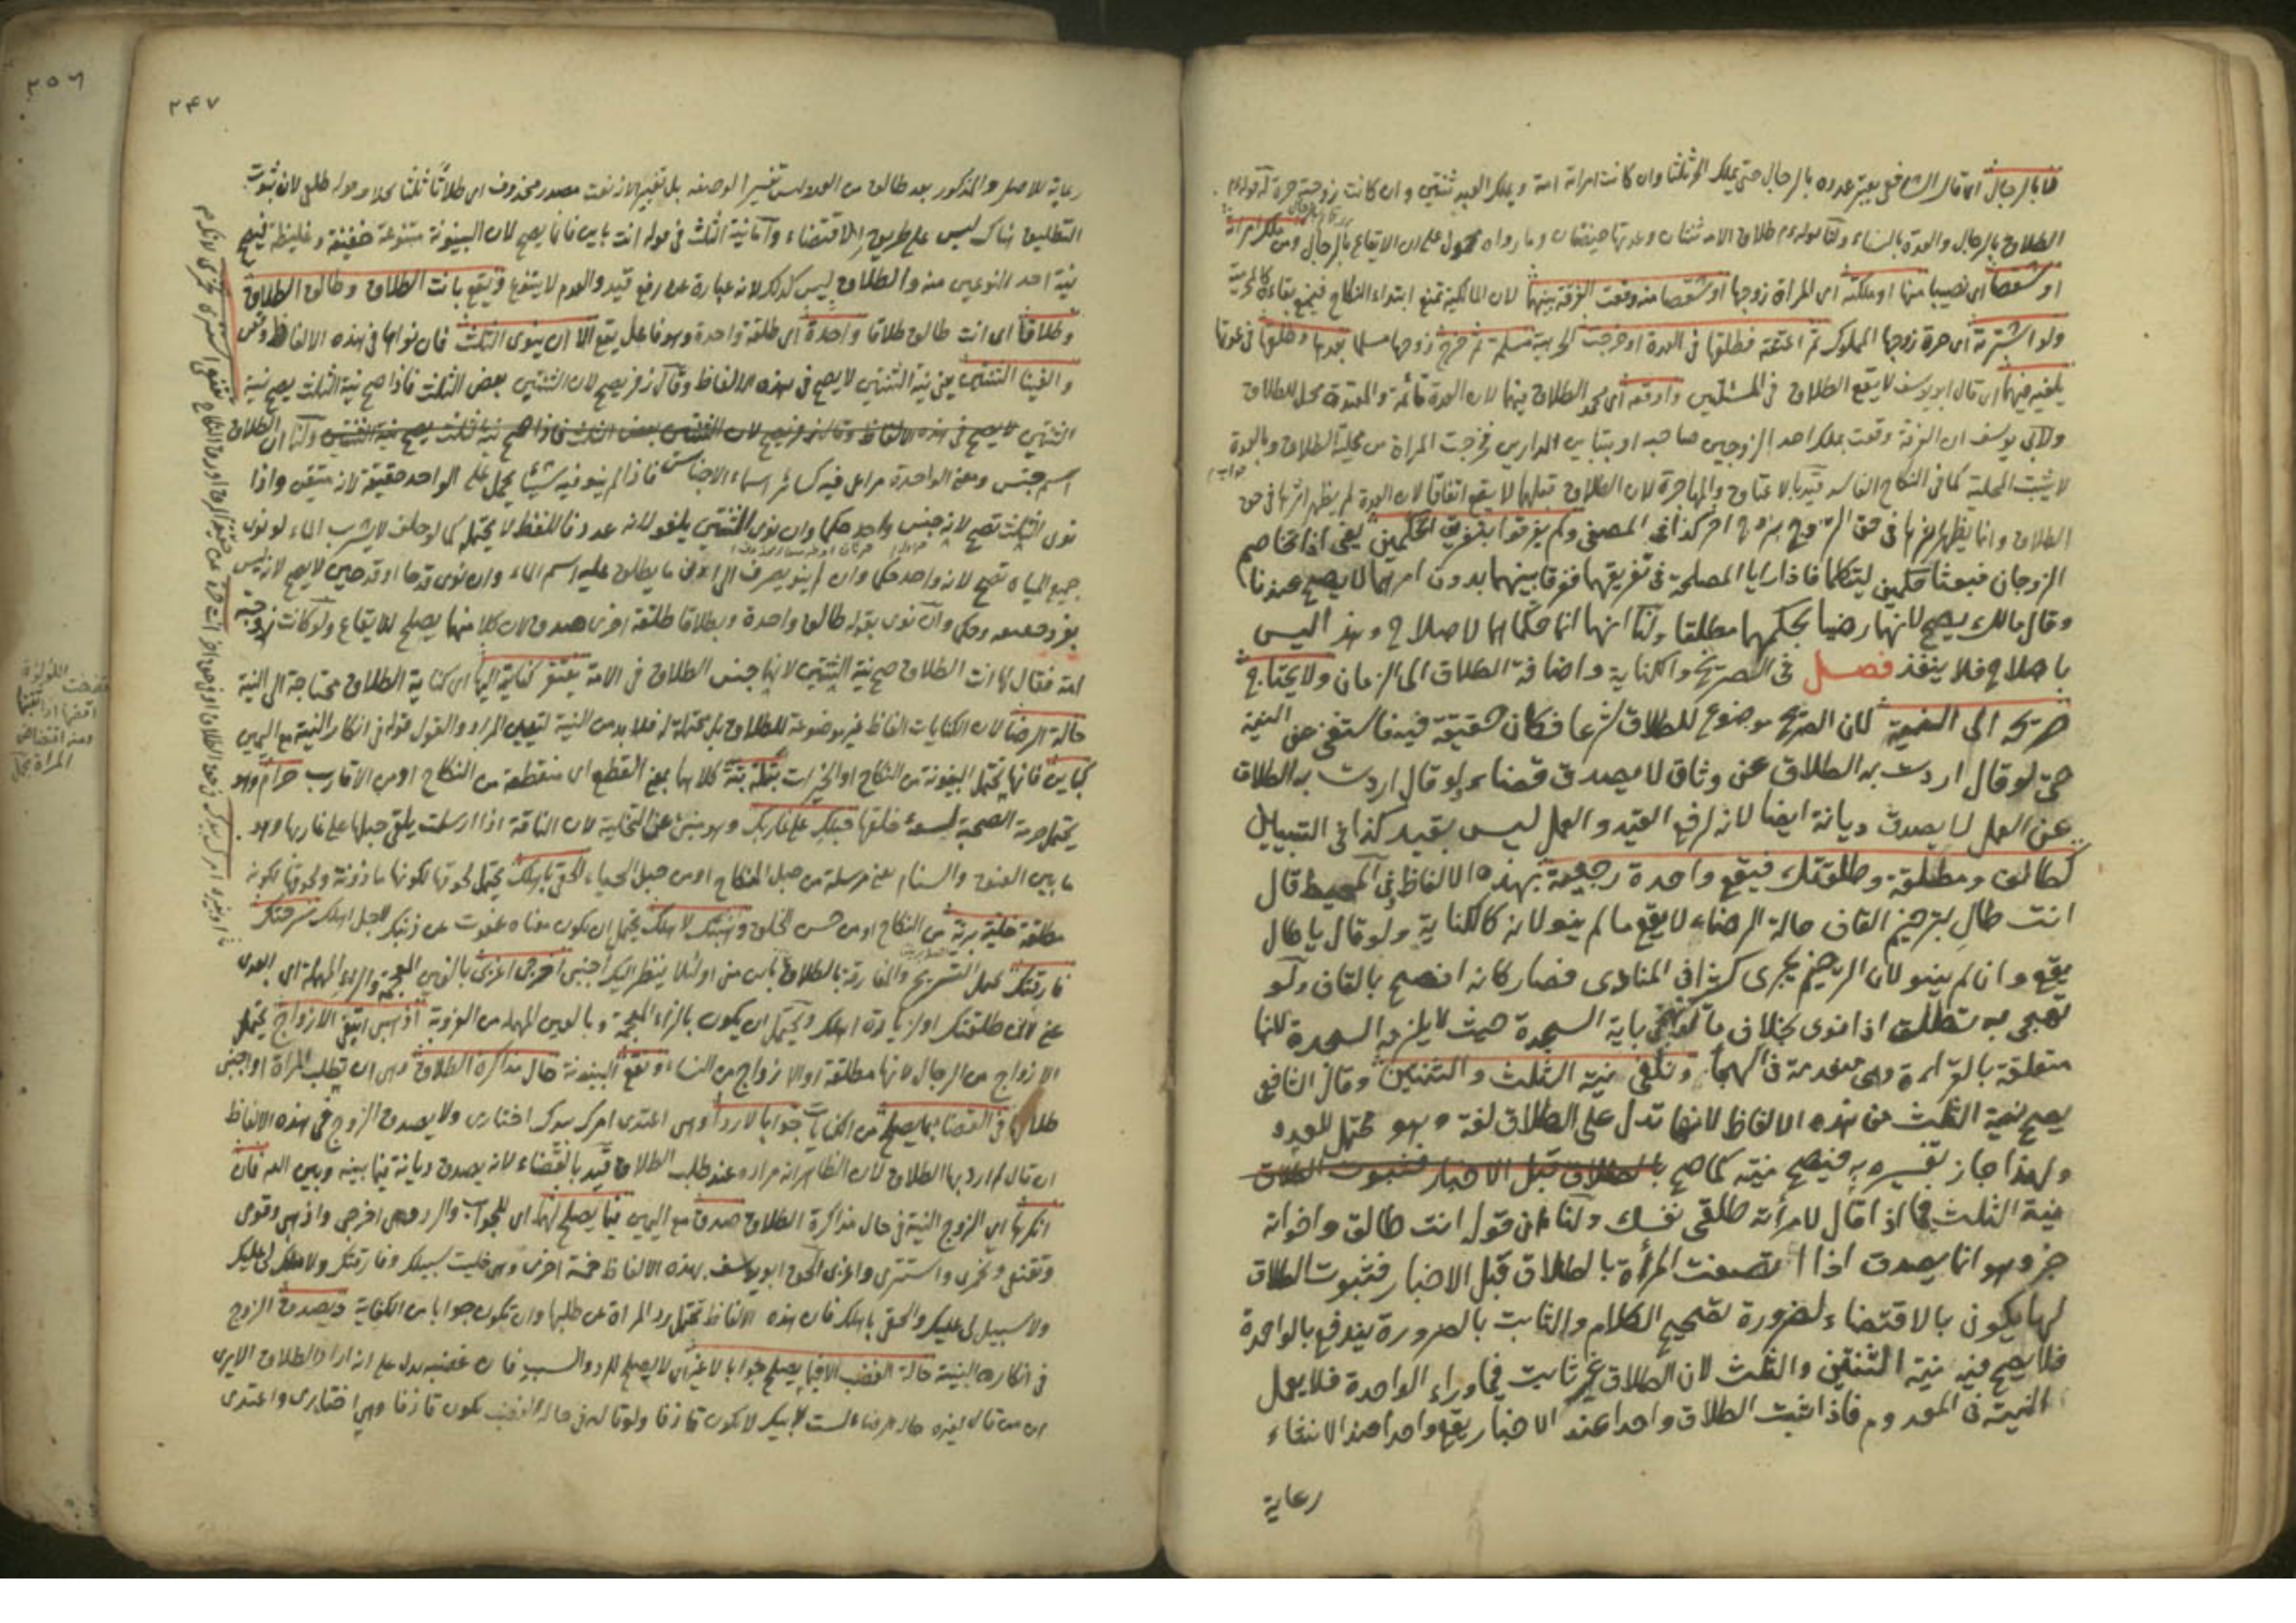 لا بالرجال اى قال الشافعى يعتبر عدده بالرجال حتى يملك الحر ثلثا وان كانت امراته امة ويملك العبد ثنتين وان كانت زوجته حرة لقوله عم
الطلاق بالرجال والعدة بالنساء ولنا قوله عم طلاق الامة ثنتان وعدتها حيضتان وما رواه محمول على ان الايقاع بالرجال ومن ملك امراته
او شقصا اى نصيبا منها او ملكته اى المراة زوجها او شقصا منه وقعت الفرقة بينهما لان المالكية تمنع ابتداء النكاح فيمنع بقاءه
ولو اشترته اى حرة زوجها المملوك ثم اعتقته فطلقها فى العدة او خرجت الحربية مسلمة ثم خرج زوجها مسلما بعدها وطلقها فى عدتها
يلغيه فيهما اى قال ابو يوسف لا يقع الطلاق فى المسئلتين واوقعه اى محمد الطلاق فيهما لان العدة قائمة والمعتدة محل للطلاق
ولابى يوسف ان الفرقة وقعت بملك احد الزوجين صاحبه او بتباين الدارين فخرجت المراة من محلية الطلاق وبالعدة
لا يثبت المحلية كما فى النكاح الفاسد قيد بالاعتاق والمهاجرة لان الطلاق قبلهما لا يقع اتفاقا لان العدة لم يظهر اثرها فى حق
الطلاق وانما يظهر اثرها فى حق التزوج بزوج اخر كذا فى المصفى ولم يفرقوا بتفريق الحكمين يعنى اذا تخاصم
الزوجان فبعثا حكمين ليتكلما فاذا رايا المصلحة فى تفريقهما ففرقا بينهما بدون امرهما لا يصح عندنا
وقال مالك يصح لانهما رضيا بحكمهما مطلقا ولنا انهما انما حكماهما لاصلاح وهذا ليس
باصلاح فلا ينفذ فصل فى الصريح والكناية واضافة الطلاق الى الزمان ولا يحتاج
صريحه الى النية لان الصريح موضوع للطلاق شرعا فكان حقيقة فيه فاستغنى عن النية
حتى لو قال اردت به الطلاق عن وثاق لا يصدق قضاء ولو قال اردت به الطلاق
عن العمل لا يصدق ديانة ايضا لانه لرفع القيد والعمل ليس بقيد كذا فى التبيين
كطالق ومطلقة وطلقتك فيقع واحدة رجعية بهذه الالفاظ فى المحيط قال
انت طال بترخيم القاف حالة الرضاء لا يقع ما لم ينو لانه كالكناية ولو قال يا طال
يقع وان لم ينو لان الترخيم يجرى كثيرا فى المنادى فصار كانه افصح بالقاف ولو
تهجى به تطلق اذا نوى بخلاف ما لو تهجى باية السجدة حيث لا يلزمه السجدة لانها
متعلقة بالقراءة وهى معدومة فى الهجاء وتلغى نية الثلث والثنتين وقال الشافعى
يصح نية الثلث من هذه الالفاظ لانها تدل على الطلاق لغة وهو محتمل للعدد
ولهذا جاز تفسيره به فيصح نيته كما صح بالطلاق قبل الاخبار فثبوت الطلاق
نية الثلث فيما اذا قال لامراته طلقى نفسك ولنا ان قوله انت طالق واخواته
خبر وهو انما يصدق اذا اتصفت المراة بالطلاق قبل الاخبار فثبوت الطلاق
لها يكون بالاقتضاء لضرورة تصحيح الكلام والثابت بالضرورة يندفع بالواحدة
فلا يصح فيه نية الثنتين والثلث لان الطلاق غير ثابت فيما وراء الواحدة فلا يعمل
النية فى المعدوم فاذا ثبت الطلاق واحدا عند الاخبار يقع واحدا عند الانشاء
رعاية
٢٤٧
رعاية للاصل والمذكور بعد طالق من العدد ليس تفسيرا لوصفه بل تغيير لانه نعت مصدر محذوف اى طلاقا ثلثا بخلاف قوله طلقى لان ثبوت
التطليق هناك ليس على طريق الاقتضاء واما نية الثلث فى قوله انت باين فانما يصح لان البينونة متنوعة خفيفة وغليظة فيصح
نية احد النوعين منه والطلاق ليس كذلك لانه عبارة عن رفع قيد والعدم لا يتنوع ويقع بانت الطلاق وطالق الطلاق
وطلاقا اى انت طالق طلاقا واحدة اى طلقة واحدة وهو فاعل يقع الا ان ينوى الثلث فان نواها فى هذه الالفاظ وقعن
والغينا الثنتين يعنى نية الثنتين لا يصح فى هذه الالفاظ وقال زفر يصح لان الثنتين بعض الثلث فاذا صح نية الثلث يصح نية
الثنتين لا يصح فى هذه الالفاظ وقال زفر يصح لان الثنتين بعض الثلث فاذا صح نية ثلث يصح نية الثنتين ولنا ان الطلاق
اسم جنس ومعنى الواحدة مراعى فيه كسائر اسماء الاجناس فاذا لم ينو فيه شيئا يحمل على الواحد حقيقة لانه متيقن واذا
نوى الثلث تصح لانه جنس واحد حكما وان نوى الثنتين يلغو لانه عدد فاللفظ لا يحتمله كما لو حلف لا يشرب الماء لو نوى
جميع المياه تصح لانه واحد حكما وان لم ينو يصرف الى الادنى ما يطلق عليه اسم الماء وان نوى قدحا او قدحين لا يصح لانه ليس
بفرد حقيقة وحكما وان نوى بقوله طالق واحدة وبطلاقا طلقة اخرى صدق لان كلا منهما يصلح للايقاع ولو كانت زوجته
امة فقال لها انت الطلاق صح نية الثنتين لانهما جنس الطلاق فى الامة يفتقر كنايته اليها اى كناية الطلاق محتاجة الى النية
حالة الرضا لان الكنايات الفاظ غير موضوعة للطلاق بل محتملة له فلا بد من النية لتعيين المراد والقول قوله فى انكار النية مع اليمين
كباين فانها يحتمل البينونة من النكاح او الخيرات بتلة بتة كلاهما بمعنى القطع اى منقطعة من النكاح او من الاقارب حرام وهو
يحتمل حرمة الصحبة حبلك على غاربك وهو ينبئ عن التخلية لان الناقة اذا ارسلت يلقى حبلها على غاربها وهو
ما بين العنق والسنام يعنى مرسلة من حبل النكاح او من حبل الحياء الحقى باهلك يحتمل لحوقها لكونها ماذونة ولحوقها لكونه
مطلقة خلية برية من النكاح او من حسن الخلق وهبتك لاهلك يحتمل ان يكون معناه عفوت عن ذنبك لاجل اهلك سرحتك
فارقتك يحتمل التسريح والمفارقة بالطلاق اى لئلا ينظر اليك اجنبى اخرجى اغربى بالغين المعجمة والراء المهملة اى ابعدى
عنى لانى طلقتك او لزيارة اهلك ويحتمل ان يكون بالزاء المعجمة وبالعين المهملة من العزوبة اذهبى ابتغى الازواج يحتمل
الازواج من الرجال لانها مطلقة او الازواج من النساء وتقع البينونة حال مذاكرة الطلاق وهى ان تطلب المراة او اجنبى
طلاقها فى القضا بما يصلح من الكنايات جوابا لا ردا وهى اعتدى امرك بيدك اختارى ولا يصدق الزوج فى هذه الالفاظ
ان قال لم ارد بها الطلاق لان الظاهر انه مراده عند طلب الطلاق قيد بالقضاء لانه يصدق ديانة فيما بينه وبين الله فان
انكرها اى الزوج النية فى حال مذاكرة الطلاق صدق مع اليمين فيما يصلح لهما اى للجواب والرد وهى اخرجى واذهبى وقومى
وتقنعى وتخمرى واستترى واغربى الحق ابو يوسف بهذه الالفاظ خمسة اخرى وهى خليت سبيلك وفارقتك ولا ملك لى عليك
ولا سبيل لى عليك والحقى باهلك فان هذه الالفاظ تحتمل رد المراة عن طلبها وان تكون جوابا من الكناية ويصدق الزوج
فى انكاره النية حالة الغضب الا فيما يصلح جوابا لا غير اى لا يصلح للرد والسب فان غضبه يدل على انه اراد الطلاق الا يرى
ان من قال لغيره حالة الرضاء لست لابيك لا يكون قاذفا ولو قاله فى حالة الغضب يكون قاذفا وهى اختارى واعتدى
٢٥٦